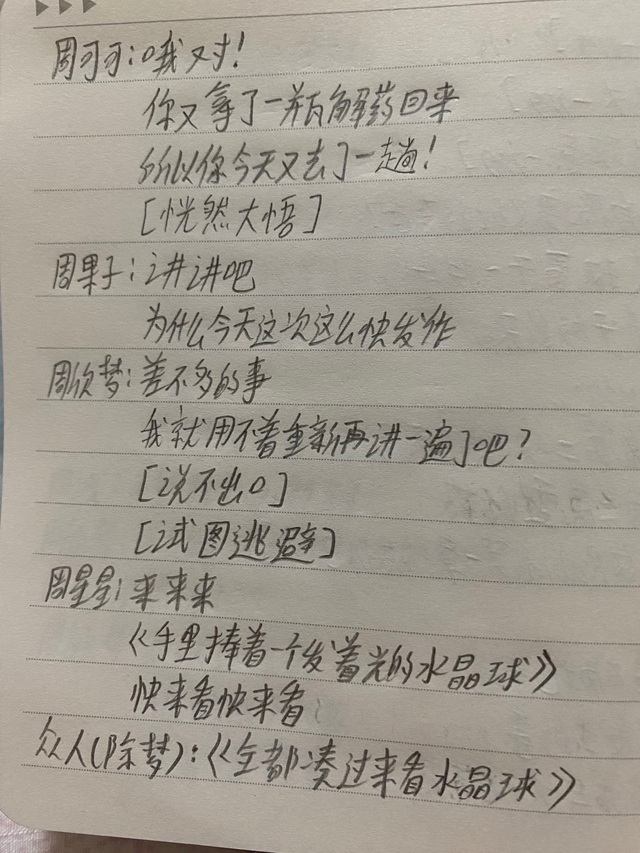 周可可：哦对！
你又拿了一瓶解药回来
所以你今天又去了一趟！
[恍然大悟]
周果子：讲讲吧
为什么今天这次这么快发作
周欣梦：差不多的事
我就用不着重新再讲一遍了吧？
[说不出口]
[试图逃避]
周星星：来来来
《手里捧着一个发着光的水晶球》
快来看快来看
众人(除梦)：《全都凑过来看水晶球》